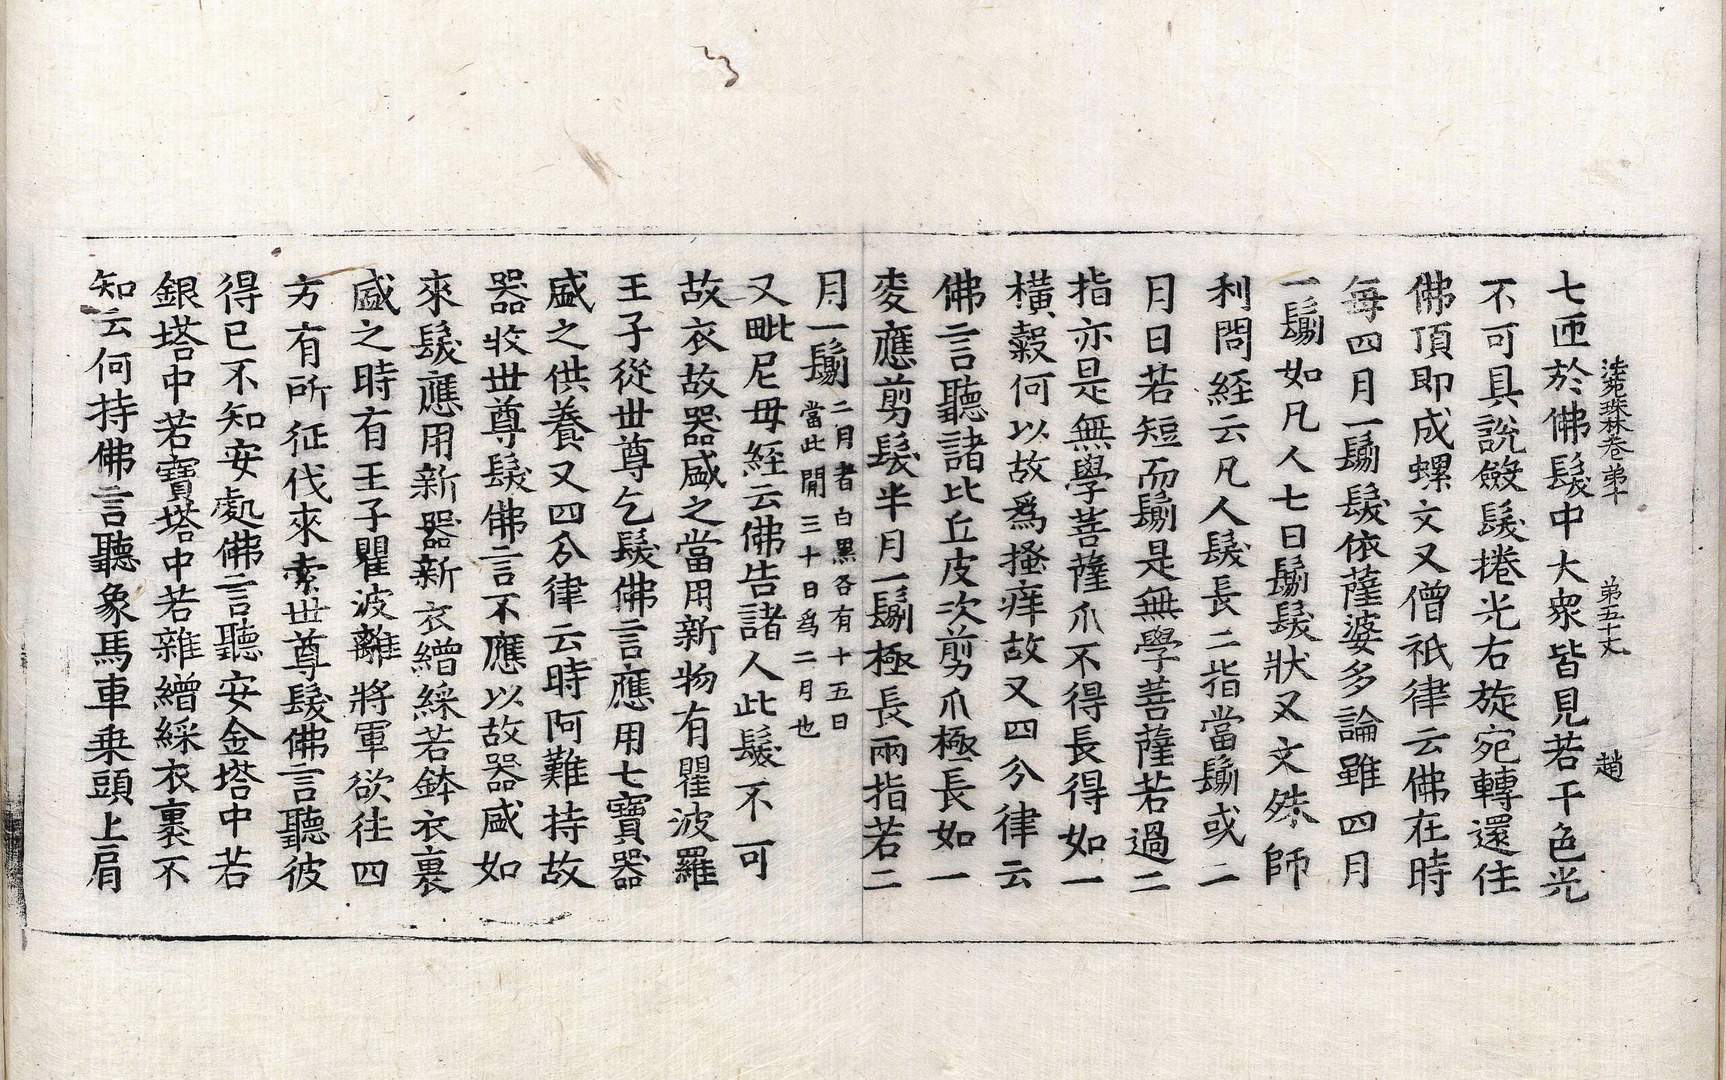 法苑珠林卷第十　第五十丈　趙
七匝於佛髮中大衆皆見若干色光
不可具說斂髮捲光右旋宛轉還住
佛頂即成螺文又僧祇律云佛在時
每四月一鬀髮依薩婆多論雖四月
一鬀如凡人七日鬀髮狀又文殊師
利問經云凡人髮長二指當鬀或二
月日若短而鬀是無學菩薩若過二
指亦是無學菩薩爪不得長得如一
橫穀何以故爲搔痒故又四分律云
佛言聽諸比丘皮次剪爪極長如一
麥應剪髮半月一鬀極長兩指若二
月一鬀二月者白黒各有十五日
當此開三十日爲二月也
又毗尼母經云佛告諸人此髮不可
故衣故器盛之當用新物有瞿波羅
王子從世尊乞髮佛言應用七寶器
盛之供養又四分律云時阿難持故
器收世尊髮佛言不應以故器盛如
來髮應用新器新衣繒綵若鉢衣裹
盛之時有王子瞿波離將軍欲往四
方有所征伐來索世尊髮佛言聽彼
得已不知安處佛言聽安金塔中若
銀塔中若寶塔中若雜繒綵衣裹不
知云何持佛言聽象馬車乗頭上肩